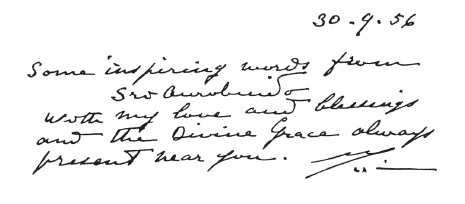 30-9-56
Some inspiring words from
Sri Aurobindo
with my love and blessings
and the Divine Grace always
present near you.